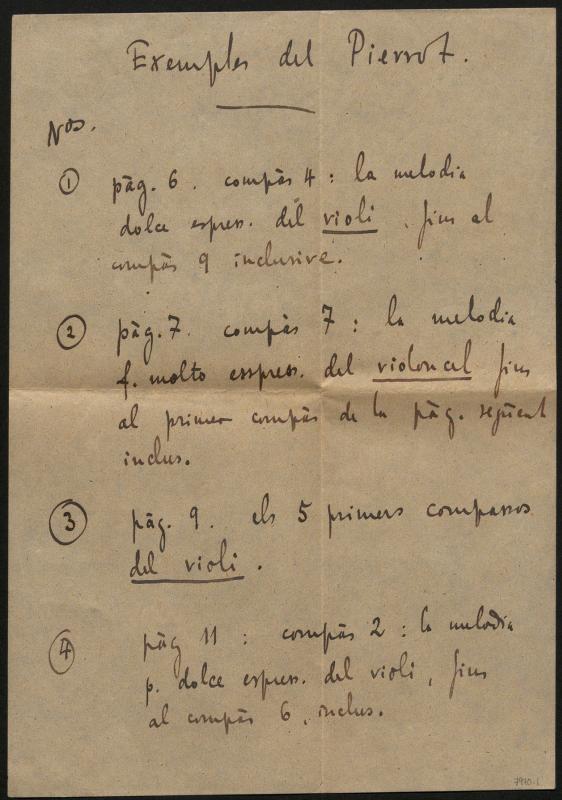 Exemples del Pierrot.
Nos.
1 pàg. 6. compàs 4: la melodia
dolce espress. del violi, fins al
compàs 9 inclusive.
2 pàg. 7. compàs 7: la melodia
f. molto esspress. del violoncel fins
al primer compàs de la pàg. següent
inclus.
3 pàg. 9. els 5 primers compassos
del violi.
4 pàg 11: compàs 2: la melodia
p. dolce espress. del violi, fins
al compàs 6, inclus.
7970-1